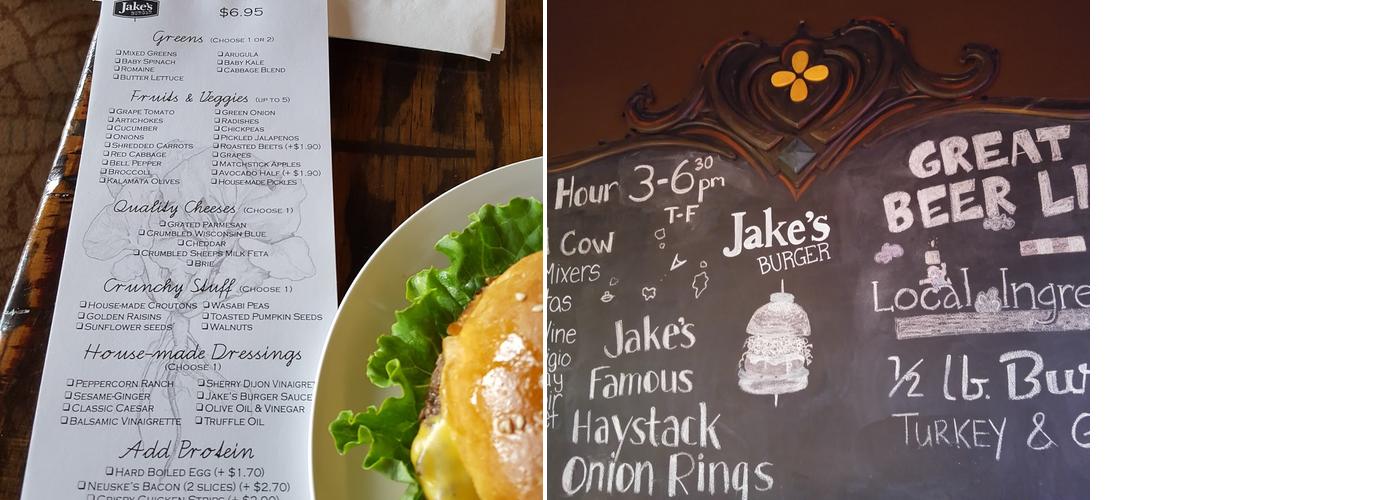 Jake's
BURGER
$6.95
Greens (CHOOSE 1 OR 2)
MIXED GREENS
BABY SPINACH
ROMAINE
BUTTER LETTUCE
ARUGULA
BABY KALE
CABBAGE BLEND
Fruits & Veggies (UP TO 5)
GRAPE TOMATO
ARTICHOKES
CUCUMBER
ONIONS
SHREDDED CARROTS
RED CABBAGE
BELL PEPPER
BROCCOLI
KALAMATA OLIVES
GREEN ONION
RADISHES
CHICKPEAS
PICKLED JALAPENOS
ROASTED BEETS (+$1.90)
GRAPES
MATCHSTICK APPLES
AVOCADO HALF (+ $1.90)
HOUSE-MADE PICKLES
Quality Cheeses (CHOOSE 1)
GRATED PARMESAN
CRUMBLED WISCONSIN BLUE
CHEDDAR
CRUMBLED SHEEPS MILK FETA
BRIE
Crunchy Stuff (CHOOSE 1)
HOUSE-MADE CROUTONS
GOLDEN RAISINS
SUNFLOWER SEEDS
WASABI PEAS
TOASTED PUMPKIN SEEDS
WALNUTS
House-made Dressings
(CHOOSE 1)
PEPPERCORN RANCH
SESAME-GINGER
CLASSIC CAESAR
BALSAMIC VINAIGRETTE
SHERRY DIJON VINAIGRET
JAKE'S BURGER SAUCE
OLIVE OIL & VINEGAR
TRUFFLE OIL
Add Protein
HARD BOILED EGG (+ $1.70)
NEUSKE'S BACON (2 SLICES) (+ $2.70)
CRISPY CHICKEN STRIPS (+ $2.90)
Hour 3-6³⁰ pm
T-F
Cow
Mixers
Jake's
Famous
Haystack
Onion Rings
Jake's
BURGER
GREAT
BEER LI
Local Ingre
½ lb. Bur
TURKEY & G